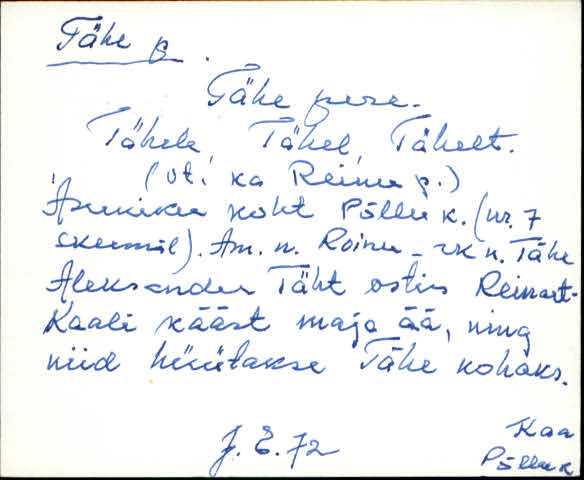 Tähe p.
Tähe pere.
Tähele Tähel Tähelt.
(vt. ka Reinu p.)
Asuniku koht Põllu k. (nr. 7
skeemil). Am. n. Reinu - rk n. Tähe
Aleksander Täht ostis Reinart-
Kaali käást maja ää, ning
niid hüütakse Tähe kohaks.
J. E. 72
Kaa
Põllu k